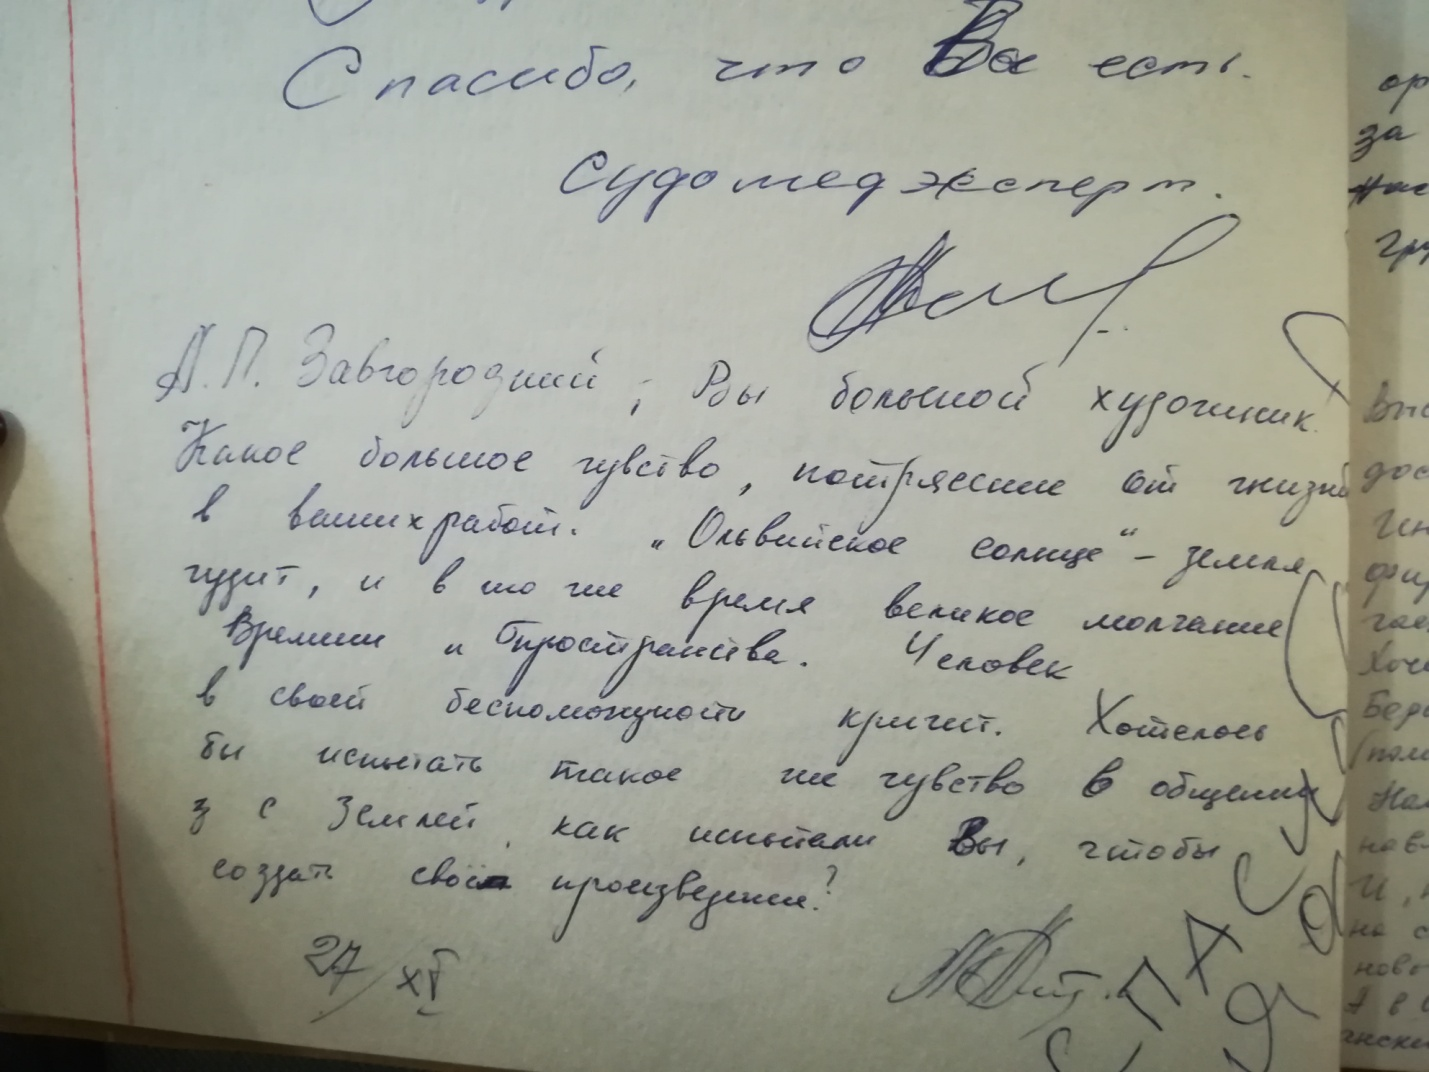 Спасибо, что Вы есть.
Судомедэксперт.
А.П. Завгородний, Вы большой художник.
Какое большое чувство, потрясение от жизни
в ваших работ. "Ольвийское солнце" – земля
гудит, и в то же время великое молчание
Времени и Пространства. Человек
в своей беспомощности кричит. Хотелось
бы испытать такое же чувство в общении
з с Землей, как испытали Вы, чтобы
создать свои произведения?
27/XI
ор
за
гру
Выс
дос
Ин
фир
Хоче
на с
ново
А в